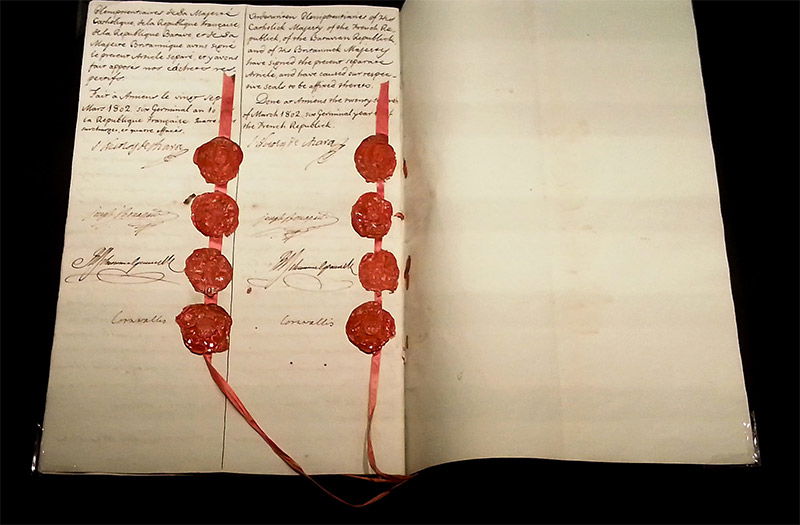 Plenipotentiaires de Sa Majesté
Catholique, de la République française
de la République Batave et de Sa
Majesté Britannique avons signé
le présent Article séparé, et y avons
fait apposer nos cachets res-
pectifs.
Fait à Amiens le vingt sep
Mars 1802. six Germinal an 10
la République française
surcharges, et quatre
J. Nicolas de Azara
Joseph Bonaparte
Cornwallis
Undersigned Plenipotentiaries of His
Catholick Majesty of the French Re-
publick, of the Batavian Republick,
and of His Britannick Majesty
have signed the present separate
Article, and have caused our respec-
tive seals to be affixed thereto.
Done at Amiens the twenty
of March 1802. six Germinal year
the French Republick.
J. Nicolas de Azara
Joseph Bonaparte
Cornwallis